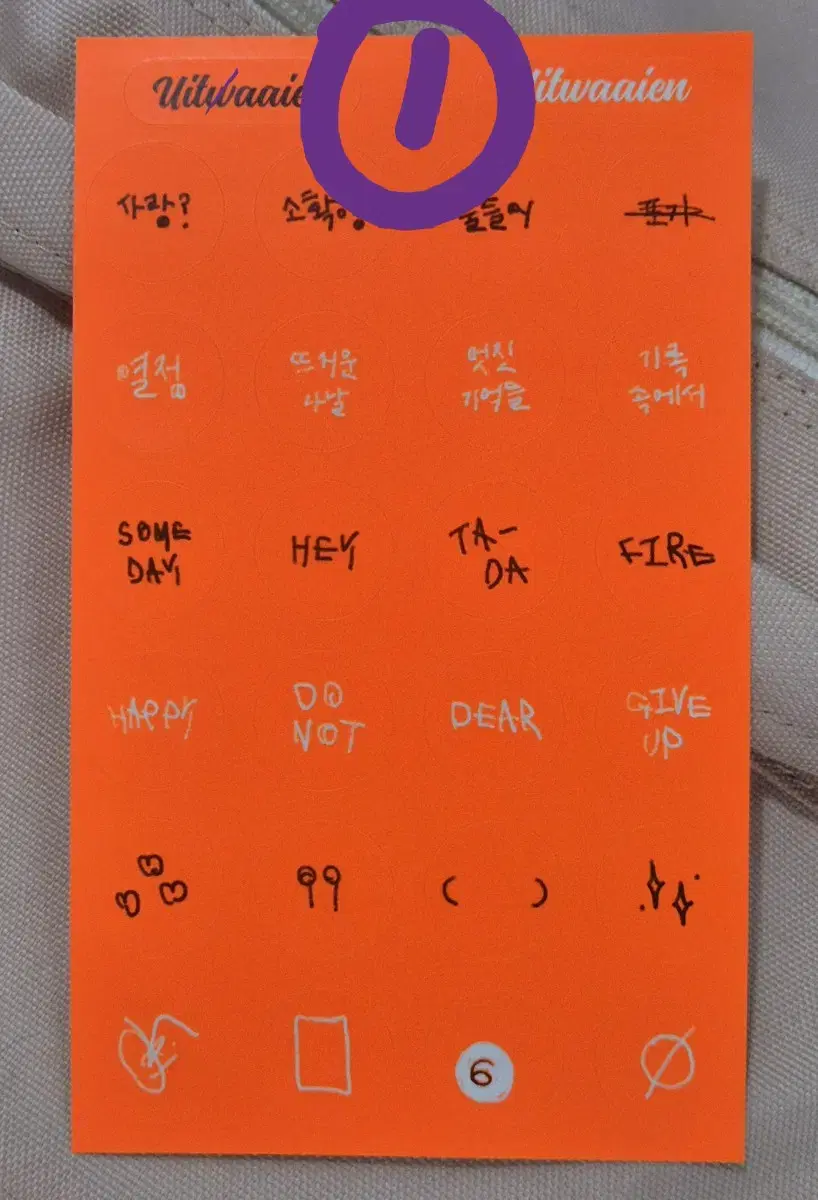 Uitwaaie
1
itwaaien
사랑?
소확행
들어
포기
열정
뜨거운
나날
멋진
기억들
기록
속에서
SOME
DAY
HEY
TA-
DA
FIRE
HAPPY
DO
NOT
DEAR
GIVE
UP
99
(    )
6